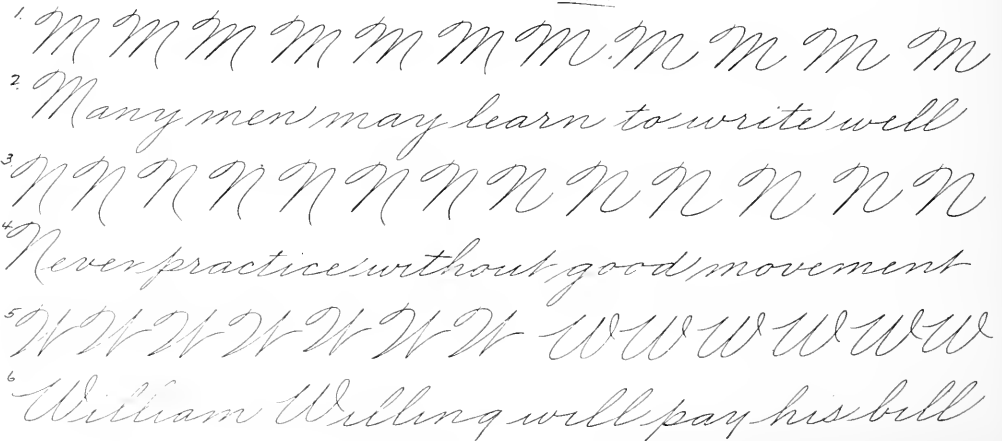 1. M M M M M M M M M M M
2. Many men may learn to write well
3. N N N N N N N N N N N N N
4. Never practice without good movement
5. W W W W W W W W W W W W W
6. William Willing will pay his bill